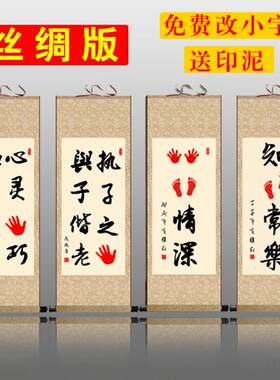 丝绸版
免费改小字
送印泥
心灵
巧
执子之
與子偕老
情深
知
常樂